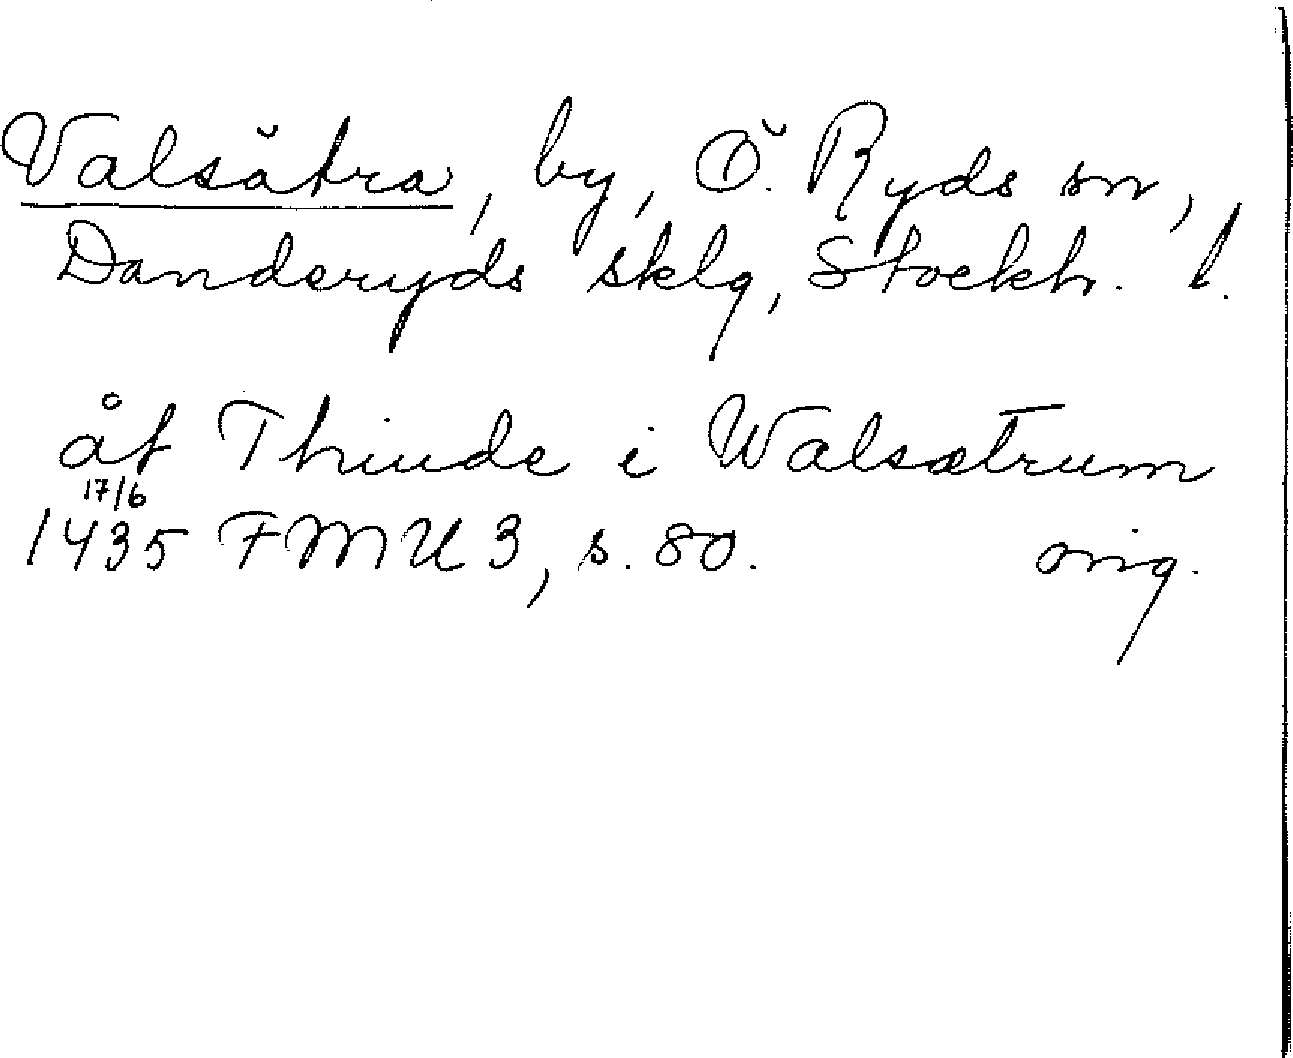 Valsätra, by, Ö. Ryds sn,
Danderyds sklg, Stockh. l.
åt Thiude i Walsætrum
17/6
1435 FMU 3, s. 80. orig.